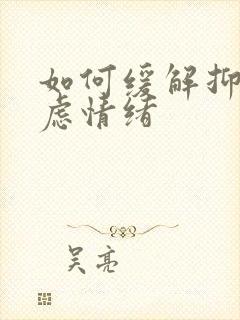 如何缓解抑
虑情绪
吴亮